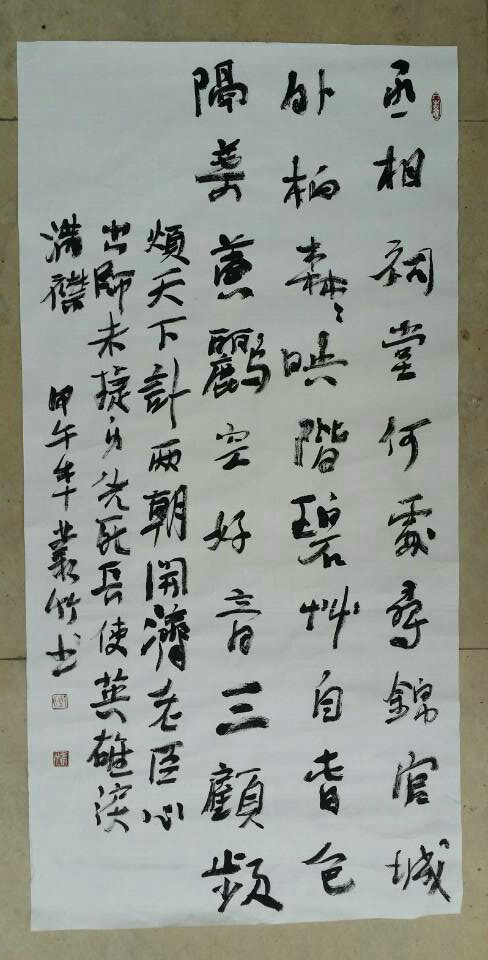 丞相祠堂何處尋錦官城
外柏森々映階碧艸自春色
隔葉黃鸝空好音三顧頻
煩天下計兩朝開濟老臣心
出師未捷身先死長使英雄淚
滿襟
甲午年叢竹书